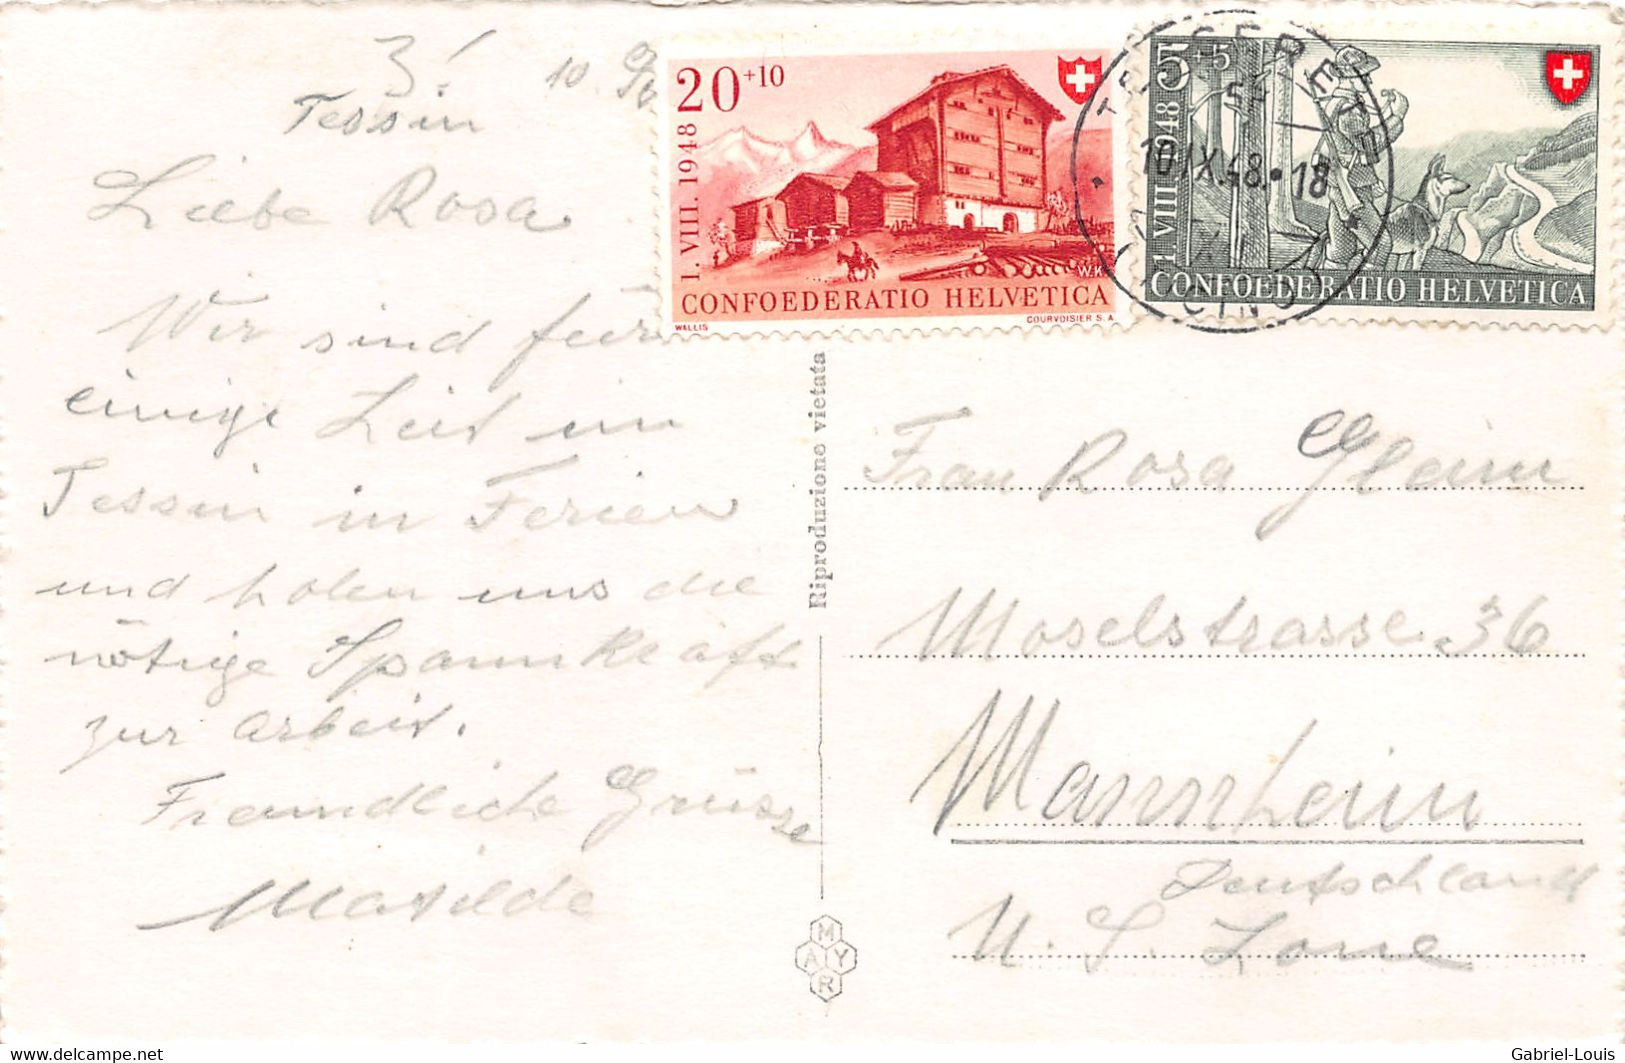 3!
Tessin 10. 9.
Liebe Rosa
Wir sind für
einige Zeit im
Tessin in Ferien
und holen uns die
nötige Spannkraft
zur Arbeit.
Freundliche Grüsse
Matilde
20+10
I. VIII. 1948
CONFOEDERATIO HELVETICA
W.K
WALLIS
COURVOISIER S.A.
5+5
I. VIII. 1948
CONFOEDERATIO HELVETICA
TESSERETE
10.IX.48.18
(TICINO)
Riproduzione vietata
MAYR
Frau Rosa
Moselstrasse 36
Mannheim
Deutschland
U. S. Zone
www.delcampe.net
Gabriel-Louis